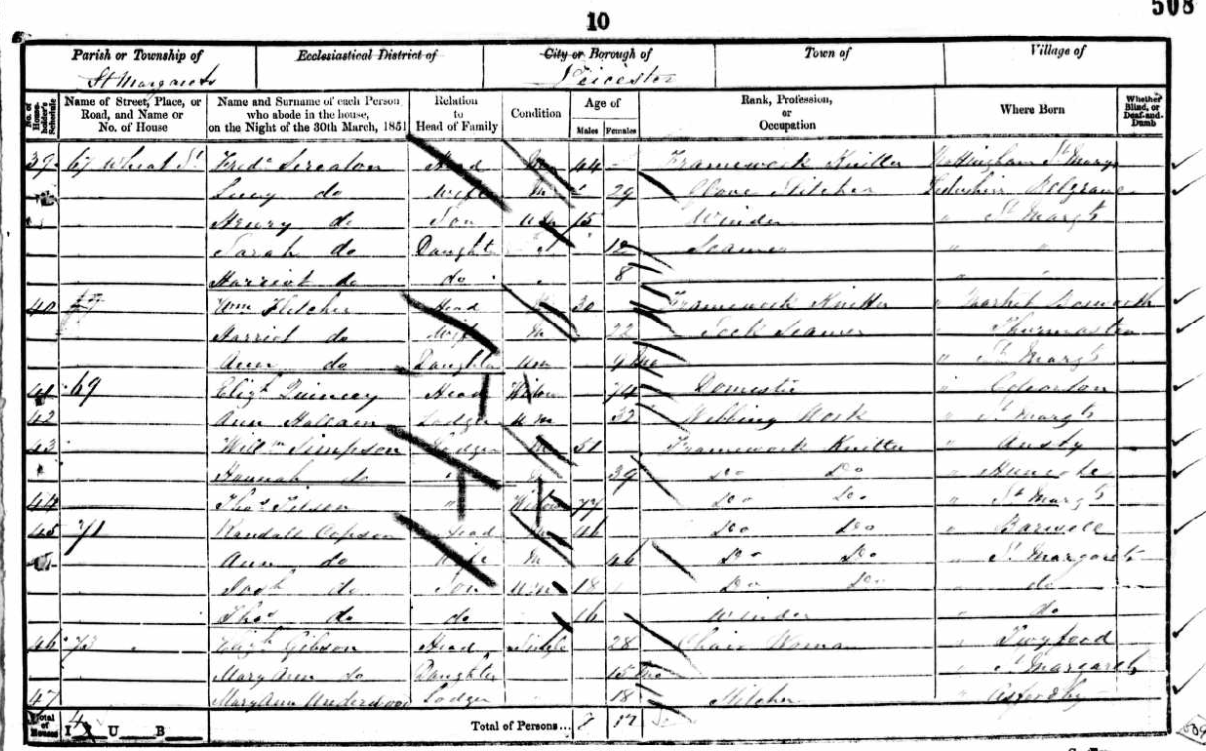 508
10
Parish or Township of Ecclesiastical District of City or Borough of Town of Village of
St Margarets Leicester
No. of House-holder's Schedule Name of Street, Place, or Road, and Name or No. of House Name and Surname of each Person who abode in the house, on the Night of the 30th March, 1851 Relation to Head of Family Condition Age of Males Females Rank, Profession, or Occupation Where Born Whether Blind, or Deaf-and-Dumb
39 67 Wheat St Head 44 Framework Knitter Nottingham St Marys
Lucy do Wife M 29 Glove Stitcher Belgrave
Henry do Son Un 15 Winder " St Margts
Sarah do Daughter 12 Seamer " "
Harriet do do 8 "
40 Wm Fletcher Head 30 Framework Knitter " Market Bosworth
Harriet do Wife M 22 Sock Seamer " Thurmaston
Ann do Daughter Un 9 Mo " St Margts
41 69 Elizth Quincey Head Widow 74 Domestic
42 Ann Hallam Lodger Un 32 Webbing Work " St Margts
43 Willm Simpson Lodger M 51 Framework Knitter " Ansty
Hannah do " 39 Do Do " Huncote
44 Thos " Widow 77 Do Do " St Margts
45 71 Randall Copson Head 46 Do Do " Barwell
Ann do Wife M 46 Do Do " St Margarets
Josh do Son Un 18 Do Do " do
Thos do do 16 Winder " do
46 73 Elizth Gibson Head Single 28 Chair Woman " Twyford
Mary Ann do Daughter 15 Mo " St Margarets
47 Mary Ann Underwood Lodger 18 Stitcher " Asfordby
Total of Houses I 4 U B Total of Persons... 17